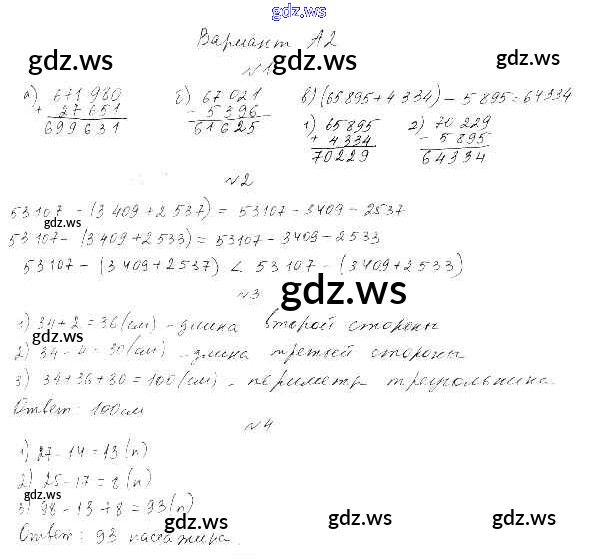 gdz.ws
Вариант А2
gdz.ws gdz.ws
№1
а) 671980 б) 67021 в) (65895+4334) - 5895 = 64334
+ 27651 - 5396 1) 65895 2) 70229
699631 61625 + 4334 - 5895
70229 64334
№2
53107 - (3409+2537) = 53107 - 3409 - 2537
gdz.ws
53107 - (3409+2533) = 53107 - 3409 - 2533
53107 - (3409+2537) < 53107 - (3409+2533)
№3
gdz.ws
1) 34+2=36(см) - длина второй стороны
gdz.ws
2) 34-4=30(см) - длина третьей стороны
3) 34+36+30=100(см) - периметр треугольника
Ответ: 100см
№4
1) 27-14=13(п)
2) 25-17=8(п)
gdz.ws
3) 98-13+8=93(п)
gdz.ws gdz.ws gdz.ws
Ответ: 93 пассажира.